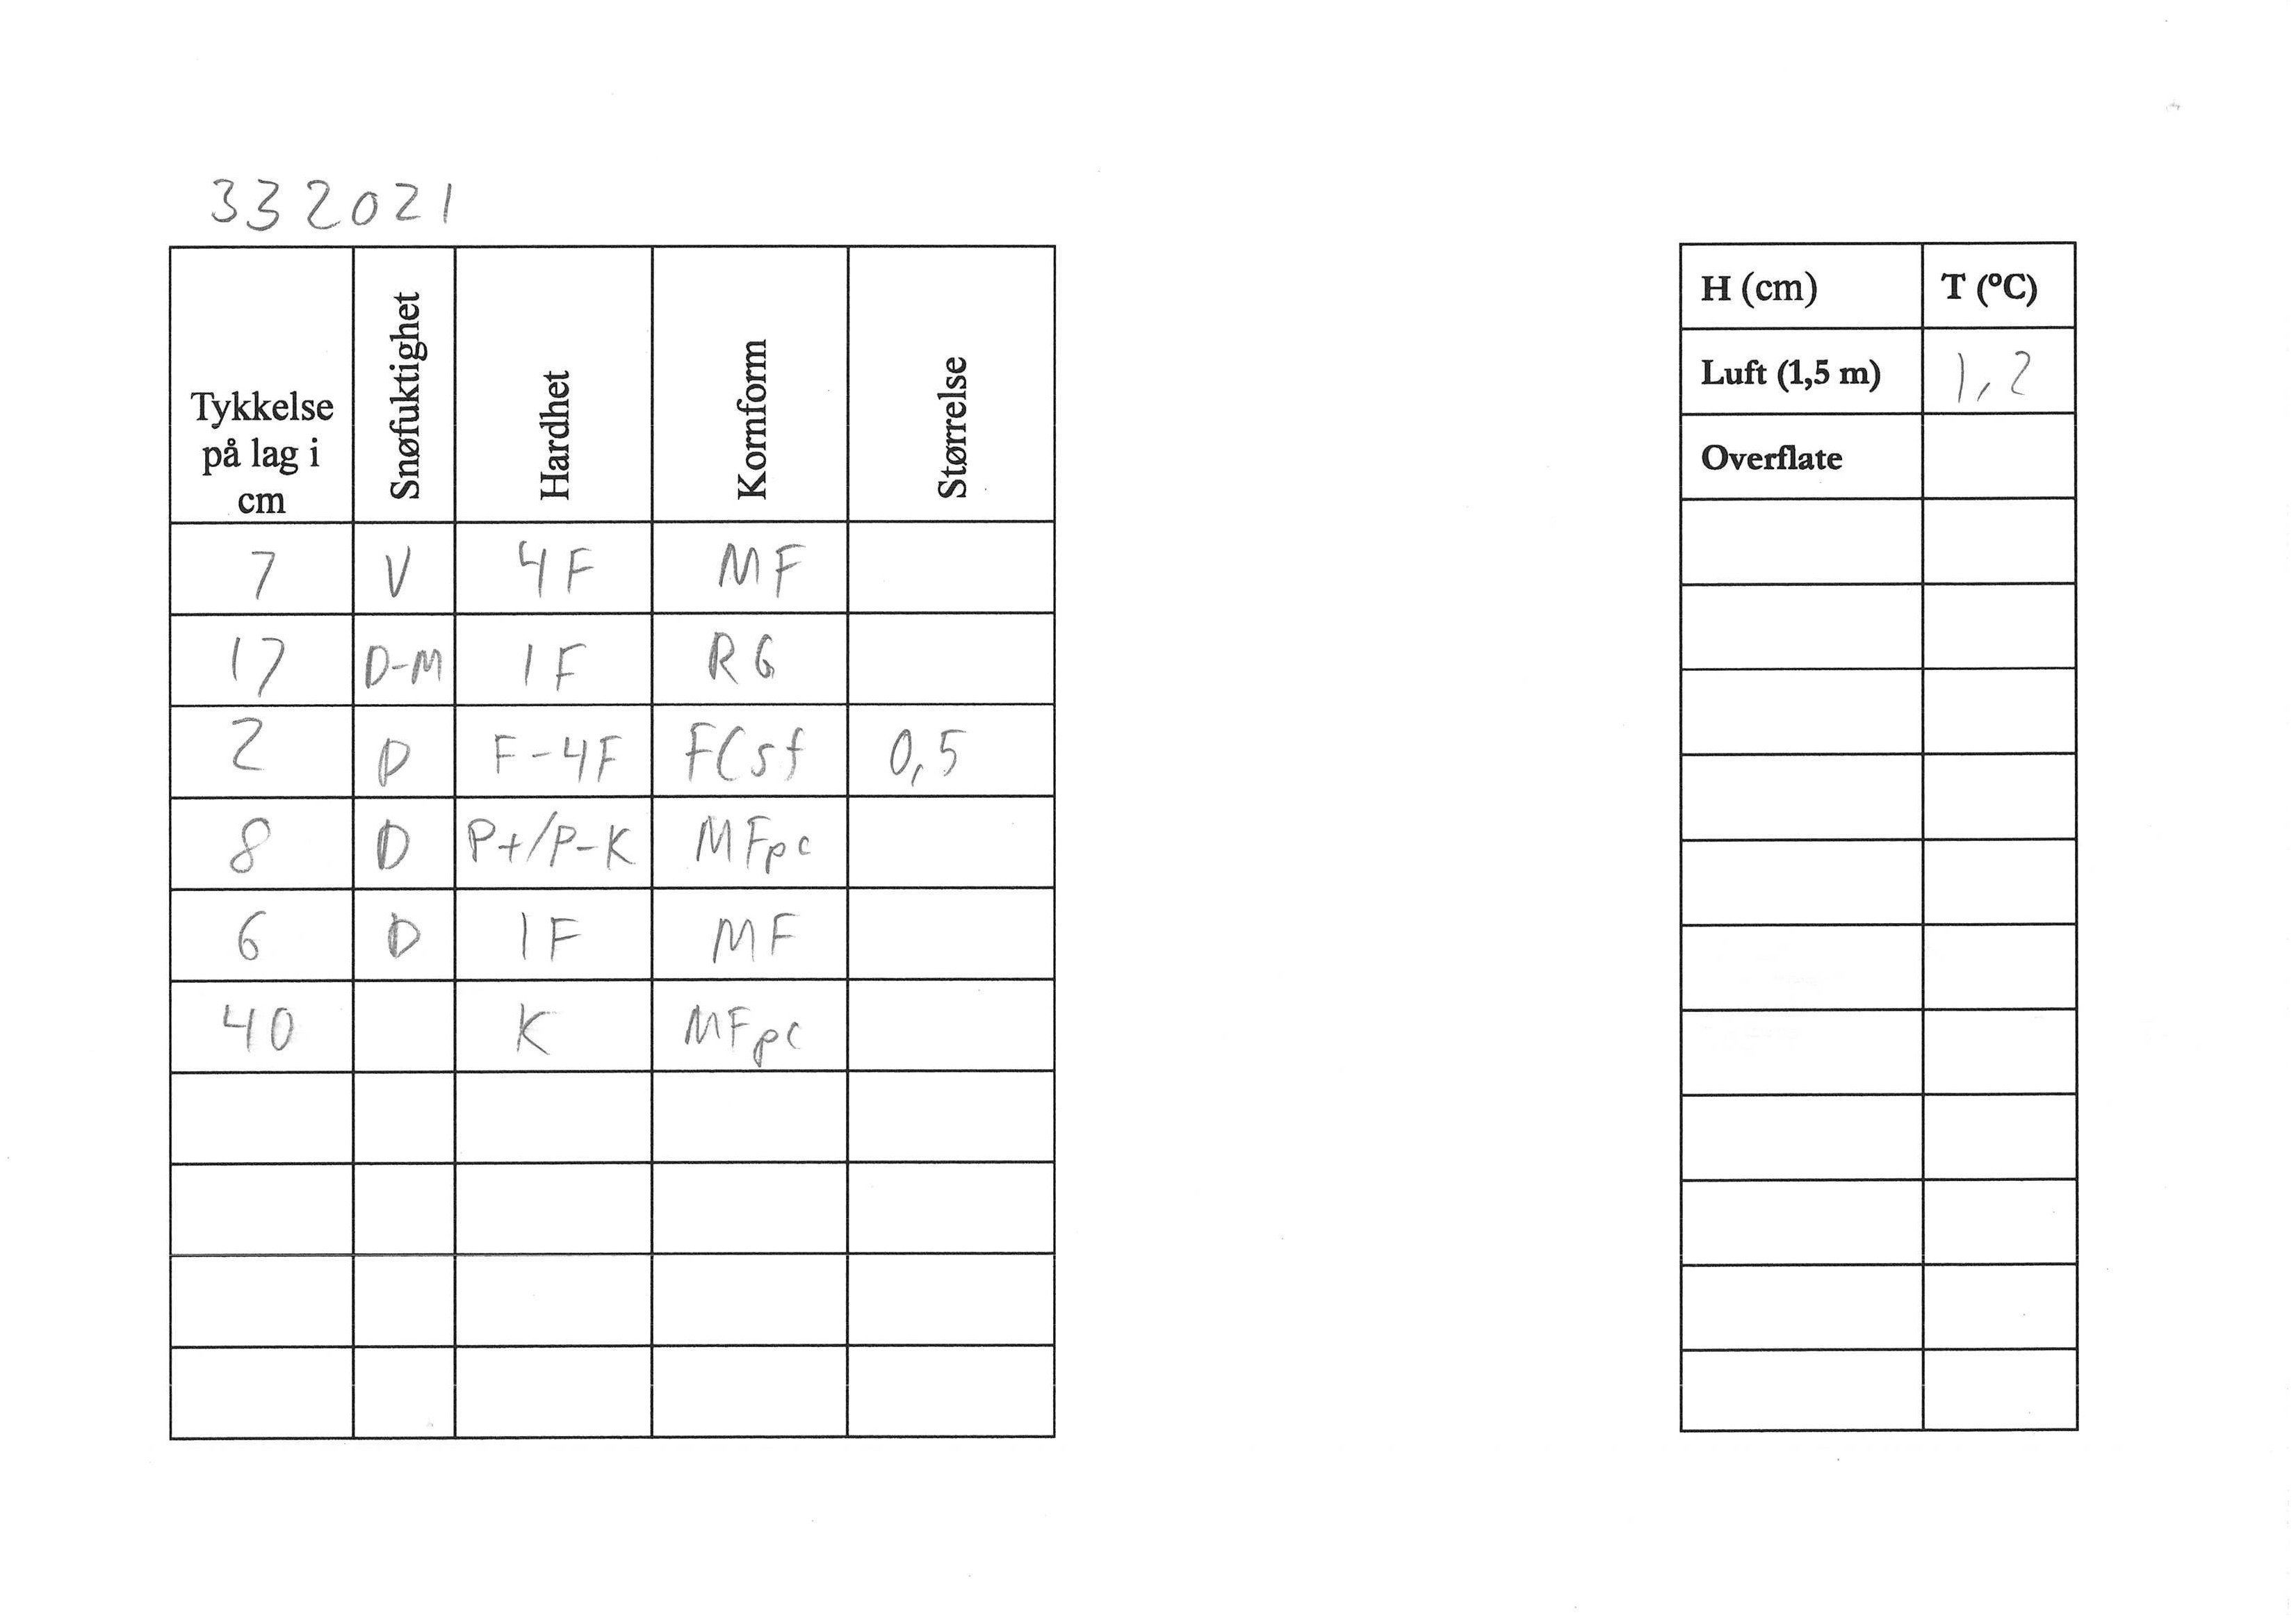 332021
Tykkelse på lag i cm Snøfuktighet Hardhet Kornform Størrelse
7 V 4F MF
17 D-M 1F RG
2 D F-4F FCsf 0,5
8 D P+/P-K MFpc
6 D 1F MF
40 K MFpc
H (cm) T (ºC)
Luft (1,5 m) 1,2
Overflate